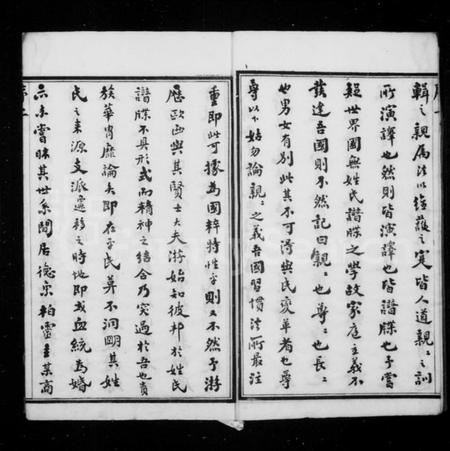 輯之親屬法以維護之寔皆人道親〻之訓
所演譯也然則皆演譯也皆譜牒也予嘗
疑世界國無姓氏譜牒之學故家庭主義不
發達吾國則不然記曰親〻也尊〻也長〻
也男女有別此其不可得與民變革者也尊
尊以下姑勿論親〻之義吾國習慣法所最注
重即此可據為國粹特性乎則又不然予游
歷歐西與其賢士大夫游始知彼邦於姓氏
譜牒不具形式而精神之結合乃突過於吾也貴
族華胄靡論矣即在平民莫不洞明其姓
氏之來源支派遷移之時地即或血統為婚
亦未嘗昧其世系閒居德京柏靈主其商